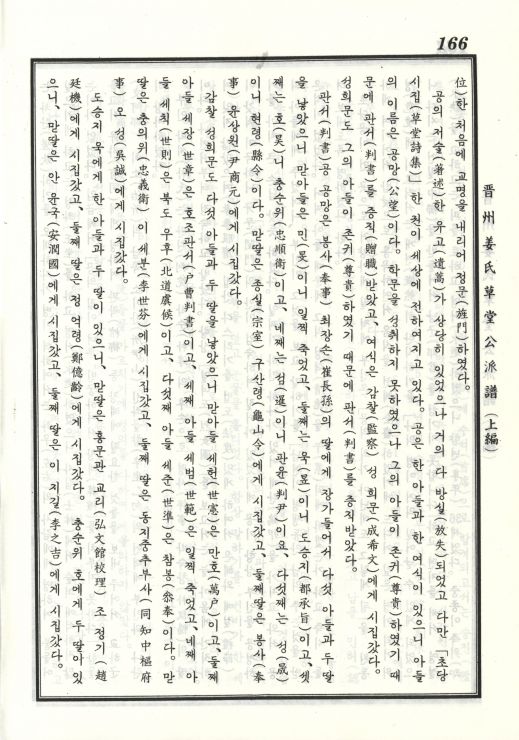 166
晋州姜氏草堂公派譜 (上編)
位)한 처음에 교명을 내리어 정문(旌門)하였다.
공의 저술(著述)한 유고(遺藁)가 상당히 있었으나 거의 다 방실(放失)되었고 다만 「초당
시집(草堂詩集)」한 권이 세상에 전하여지고 있다. 공은 한 아들과 한 여식이 있으니 아들
의 이름은 공망(公望)이다. 학문을 성취하지 못하였으나 그의 아들이 존귀(尊貴)하였기 때
문에 판서(判書)를 증직(贈職)받았고, 여식은 감찰(監察) 성 희문(成希文)에게 시집갔다.
성희문도 그의 아들이 존귀(尊貴)하였기 때문에 판서(判書)를 증직받았다.
판서(判書)공 공망은 봉사(奉事) 최장손(崔長孫)의 딸에게 장가들어서 다섯 아들과 두 딸
을 낳았으니 맏아들은 민(旻)이니 일찍 죽었고, 둘째는 욱(昱)이니 도승지(都承旨)이고, 셋
째는 호(昊)니 충순위(忠順衛)이고, 네째는 섬(暹)이니 판윤(判尹)이요, 다섯째는 성(晟)
이니 현령(縣令)이다. 맏딸은 종실(宗室) 구산령(龜山令)에게 시집갔고, 둘째딸은 봉사(奉
事) 윤상원(尹商元)에게 시집갔다.
감찰 성희문도 다섯 아들과 두 딸을 낳았으니 맏아들 세헌(世憲)은 만호(萬戶)이고, 둘째
아들 세장(世章)은 호조판서(戶曹判書)이고, 세째 아들 세범(世範)은 일찍 죽었고, 네째 아
들 세칙(世則)은 북도 우후(北道虞候)이고, 다섯째 아들 세준(世準)은 참봉(叅奉)이다. 맏
딸은 충의위(忠義衛) 이 세분(李世芬)에게 시집갔고, 둘째 딸은 동지중추부사(同知中樞府
事) 오 성(吳誠)에게 시집갔다.
도승지 욱에게 한 아들과 두 딸이 있으니, 맏딸은 홍문관 교리(弘文館校理) 조 정기(趙
廷機)에게 시집갔고, 둘째 딸은 정 억령(鄭億齡)에게 시집갔다. 충순위 호에게 두 딸이 있
으니, 맏딸은 안 윤국(安潤國)에게 시집갔고, 둘째 딸은 이 지길(李之吉)에게 시집갔다.